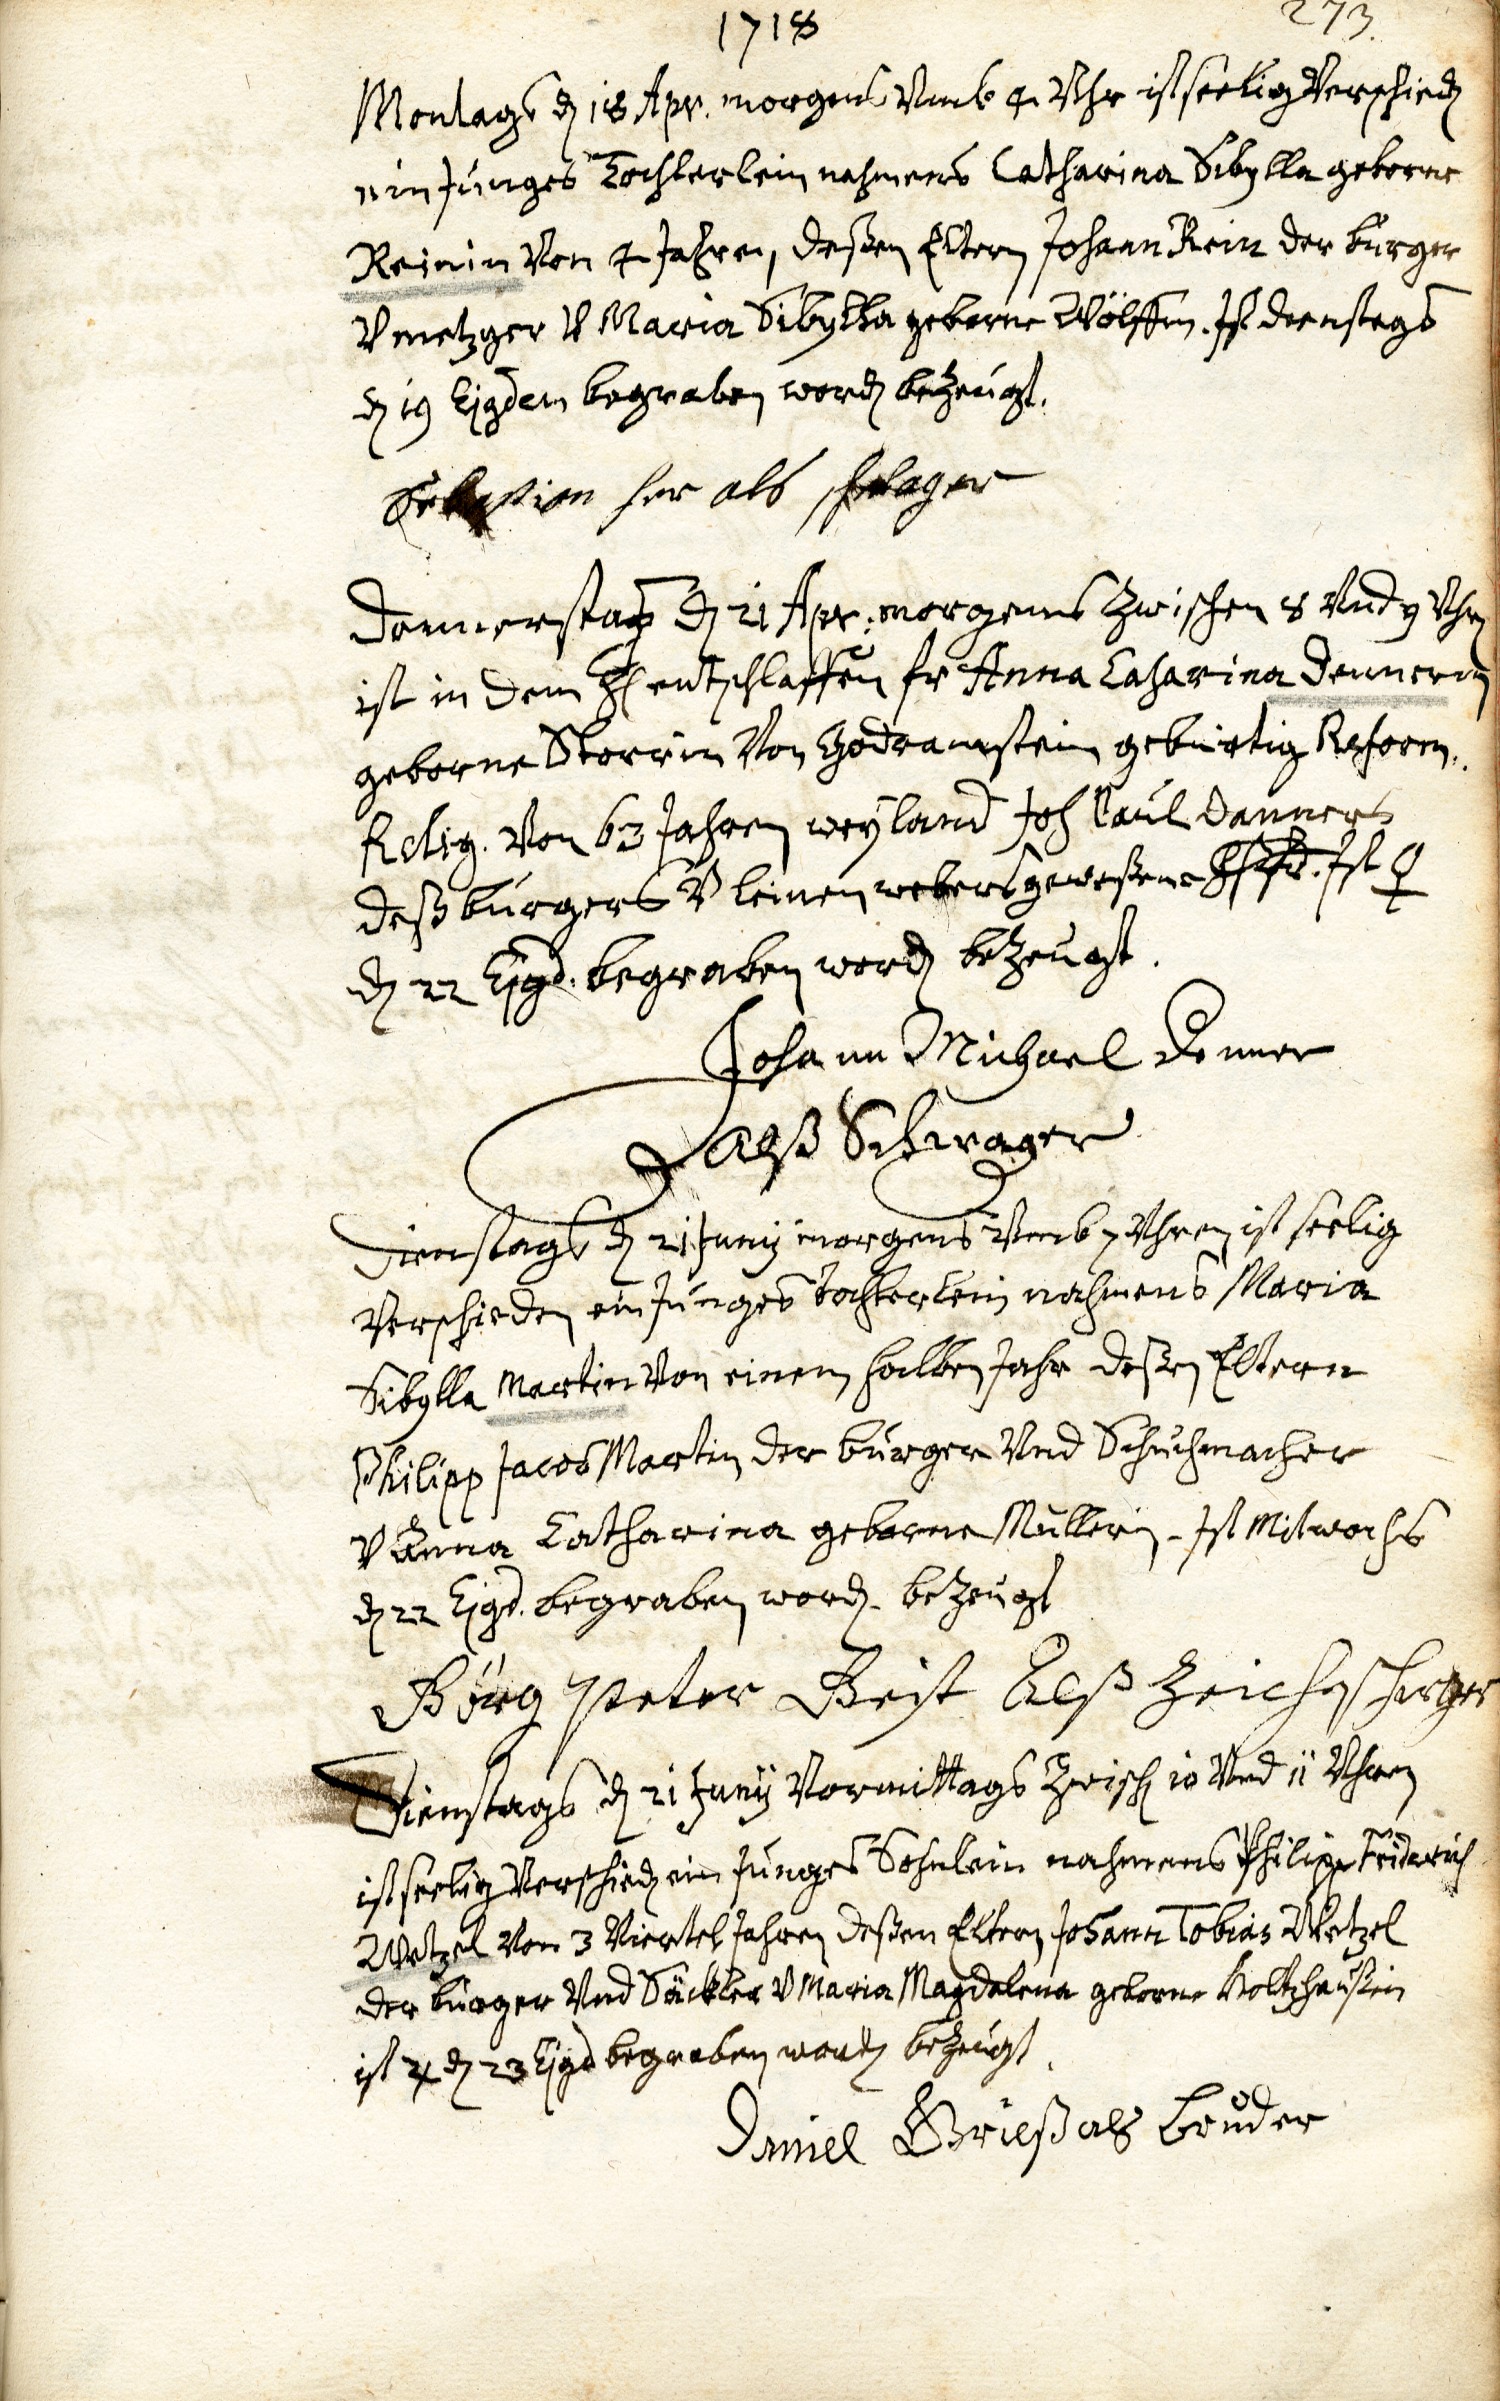 1718
273.
Montags d 18 Apr. morgens Umb 4 Uhr ist seelig Verschied
ein Junges Tochterlein nahmens Catharina Sibylla geborne
Reinin Von 4 Jahren, deßen Eltern Johann Rein der burger
V metzger V Maria Sibylla geborne Wölffin. Ist dienstags
d 19 Ejusdem begraben word bezeugt.
als
Donnerstag d 21 Apr: morgens Zwischen 8 Und 9 Uhr
ist in dem H entschlaffen fr Anna Catharina Dennerin
geborne Storrin Von Godramstein gebürtig Reform.
Relig. Von 63 Jahren weyland Joh Paul Danners
deß burgers V leinenwebers geweßene Ist ♀
d 22 Ejusd. begraben word bezeugt.
Johann Michael Denner
Alß Schwager
Dienstags d 21 Juny morgens Umb 7 Uhren ist seelig
Verschieden ein Junges tochterlein nahmens Maria
Sibylla Martin Von einem halben Jahr deßen Eltern
Philipp Jacob Martin der burger Und Schuchmacher
V Anna Catharina geborne Müllerin. Ist Mitwochs
d 22 Ejusd. begraben word. bezeugt
Görg Peter Geist Alß
Dienstags d 21 Juny Vormittags Zwisch 10 Und 11 Uhren
ist seelig Verschied ein Junges Sohnlein nahmens Philipp Friderich
Wetzel Von 3 Viertel Jahren deßen Eltern Johann Tobias Wetzel
der burger Und Säckler V Maria Magdalena geborne Holtzhaußin
ist ♃ d 23 Ejusd begraben word bezeugt.
Daniel Grieß als bruder